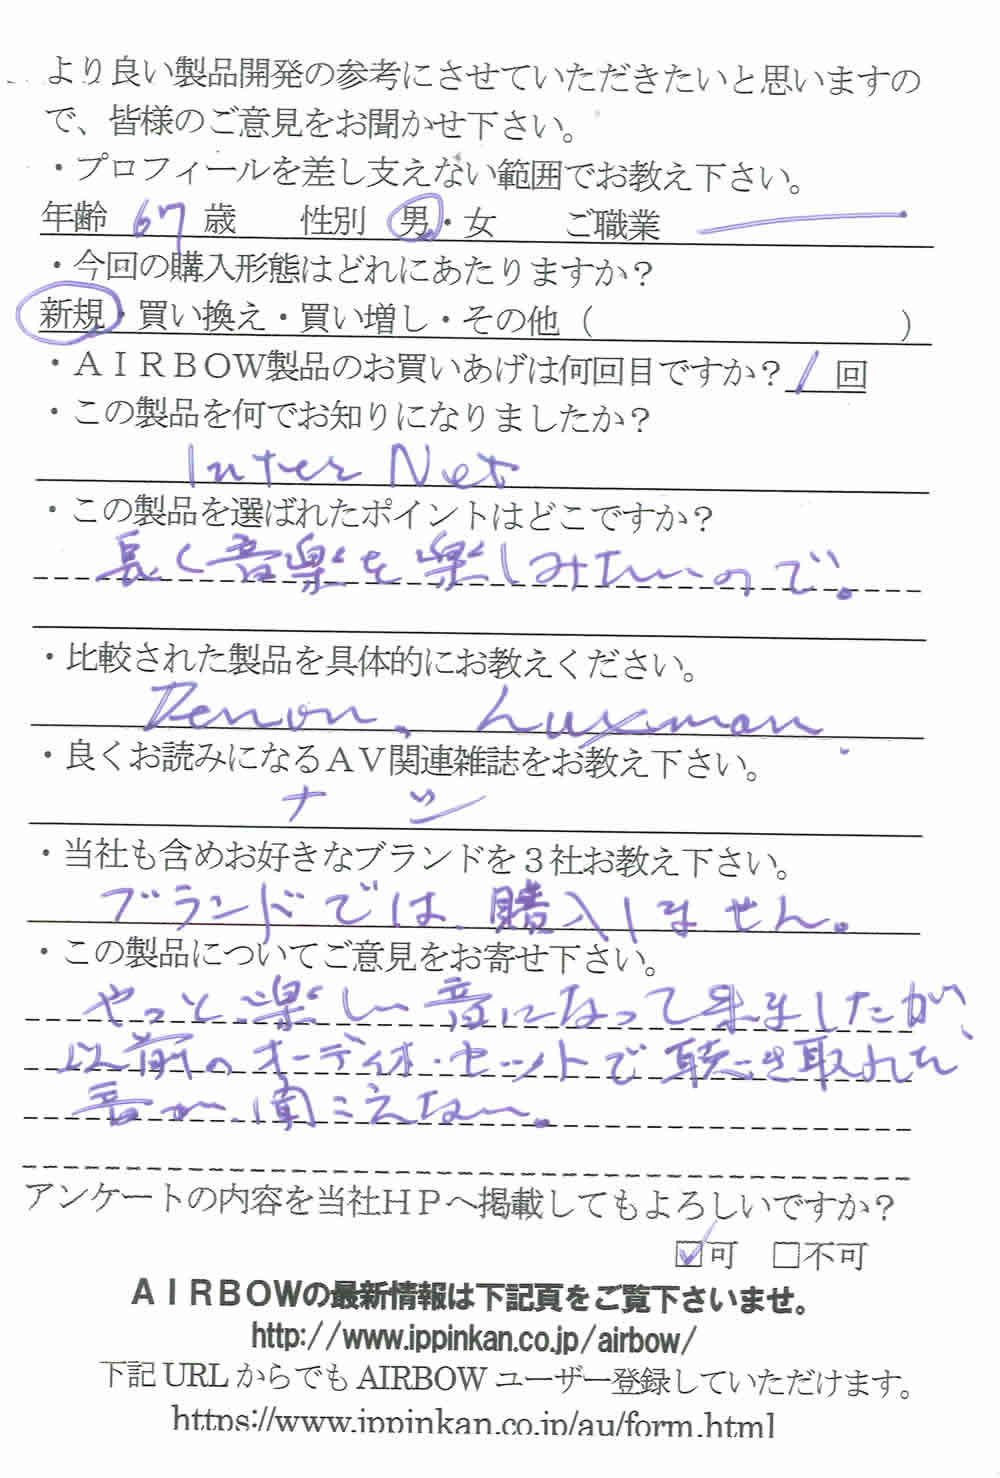 より良い製品開発の参考にさせていただきたいと思いますの
で、皆様のご意見をお聞かせ下さい。
・プロフィールを差し支えない範囲でお教え下さい。
年齢 67 歳 性別 男・女 ご職業
・今回の購入形態はどれにあたりますか？
新規・買い換え・買い増し・その他（ ）
・ＡＩＲＢＯＷ製品のお買いあげは何回目ですか？ 1 回
・この製品を何でお知りになりましたか？
Inter Net
・この製品を選ばれたポイントはどこですか？
長く音楽を楽しみたいので。
・比較された製品を具体的にお教えください。
Denon、Luxman.
・良くお読みになるＡＶ関連雑誌をお教え下さい。
ナシ
・当社も含めお好きなブランドを３社お教え下さい。
ブランドでは購入しません。
・この製品についてご意見をお寄せ下さい。
やっと楽しい音になって来ましたが、
以前のオーディオ・セットで聴き取れた
音が聞こえない。
アンケートの内容を当社ＨＰへ掲載してもよろしいですか？
☑可 □不可
ＡＩＲＢＯＷの最新情報は下記頁をご覧下さいませ。
http://www.ippinkan.co.jp/airbow/
下記 URL からでも AIRBOW ユーザー登録していただけます。
https://www.ippinkan.co.jp/au/form.html